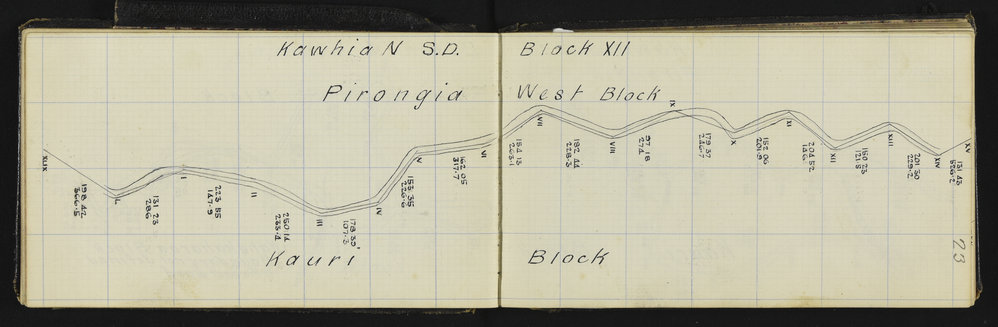 Kawhia N S.D. Block XII
Pirongia West Block
XLIX
198.42
366.5
L
131 23
286
I
223 55
147.9
II
250 14
235.4
III
178.30'
107.3
IV
153.35
226.6
V
162 05
317.7
VI
154 13
263.1
VII
182 44
228.3
VIII
97 18
274
IX
179 37
246.7
X
152 06
201.9
XI
204 52
146
XII
150 23
121.5
XIII
201 30
229.2
XIV
131 43
526.2
XV
Kauri Block
23